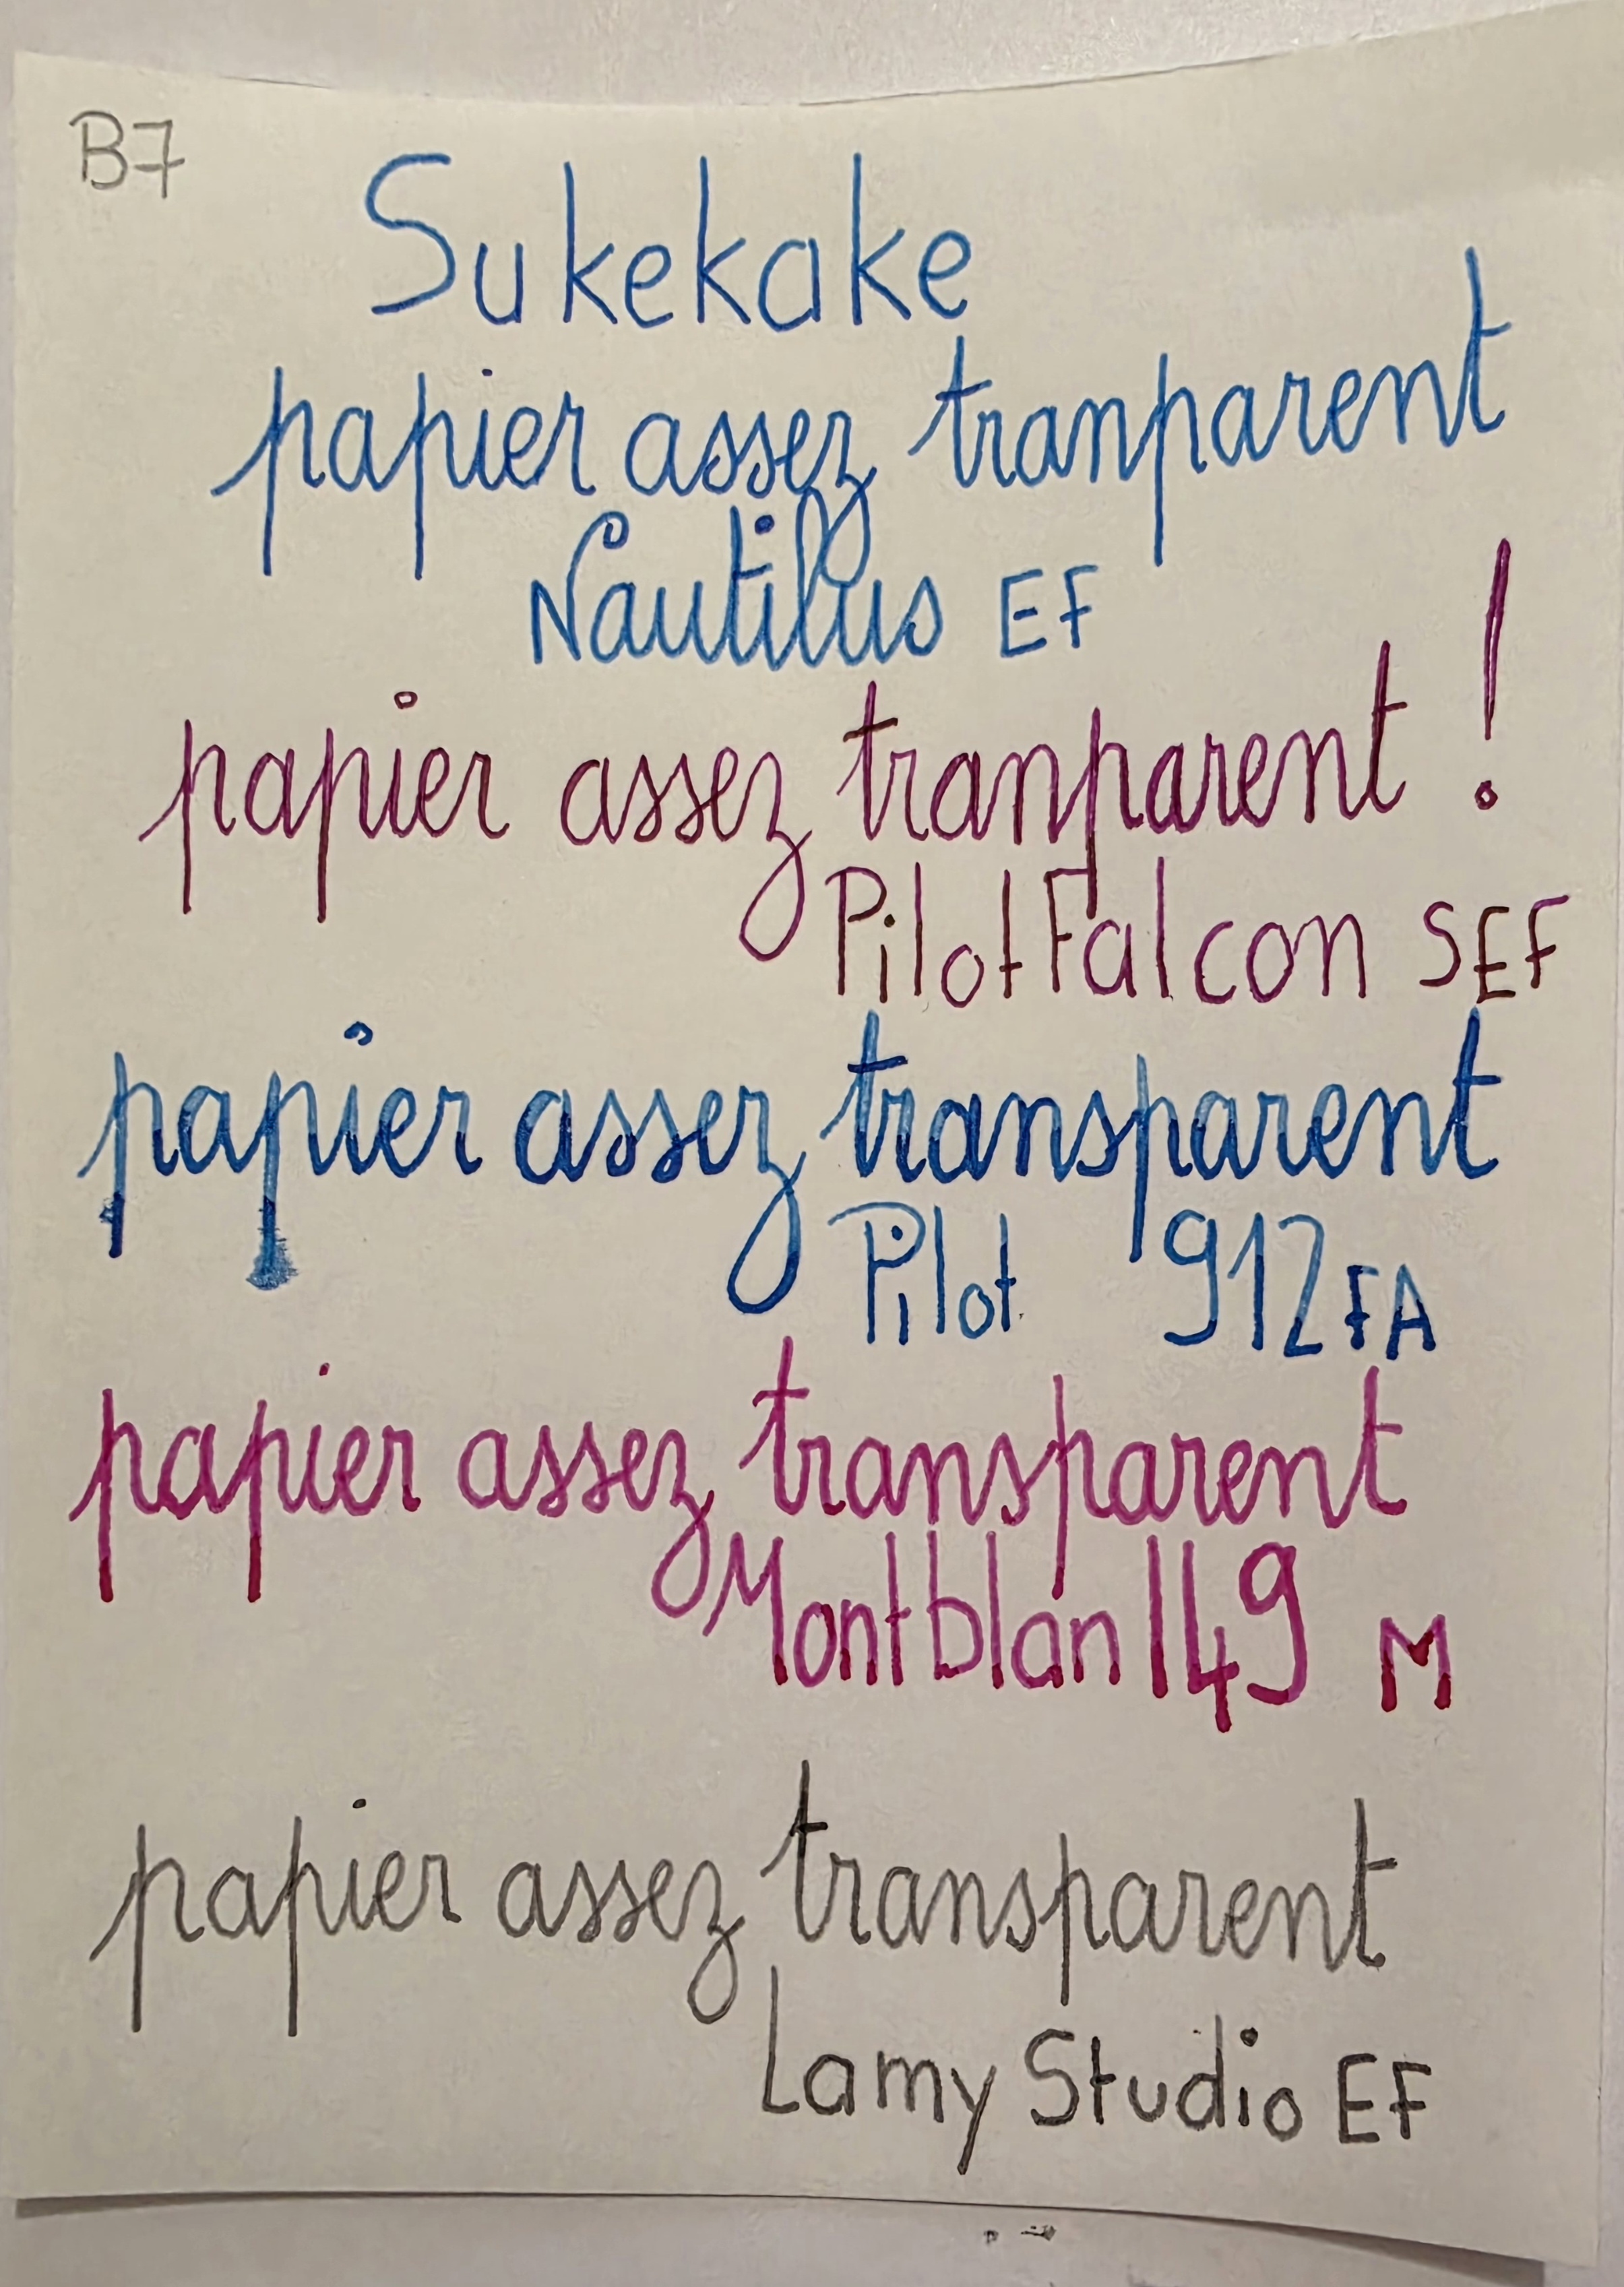 B7
Sukekake
papier assez tranparent
Nautilus EF
papier assez tranparent !
Pilot Falcon SEF
papier assez transparent
Pilot 912 FA
papier assez transparent
Montblan 149 M
papier assez transparent
Lamy Studio EF